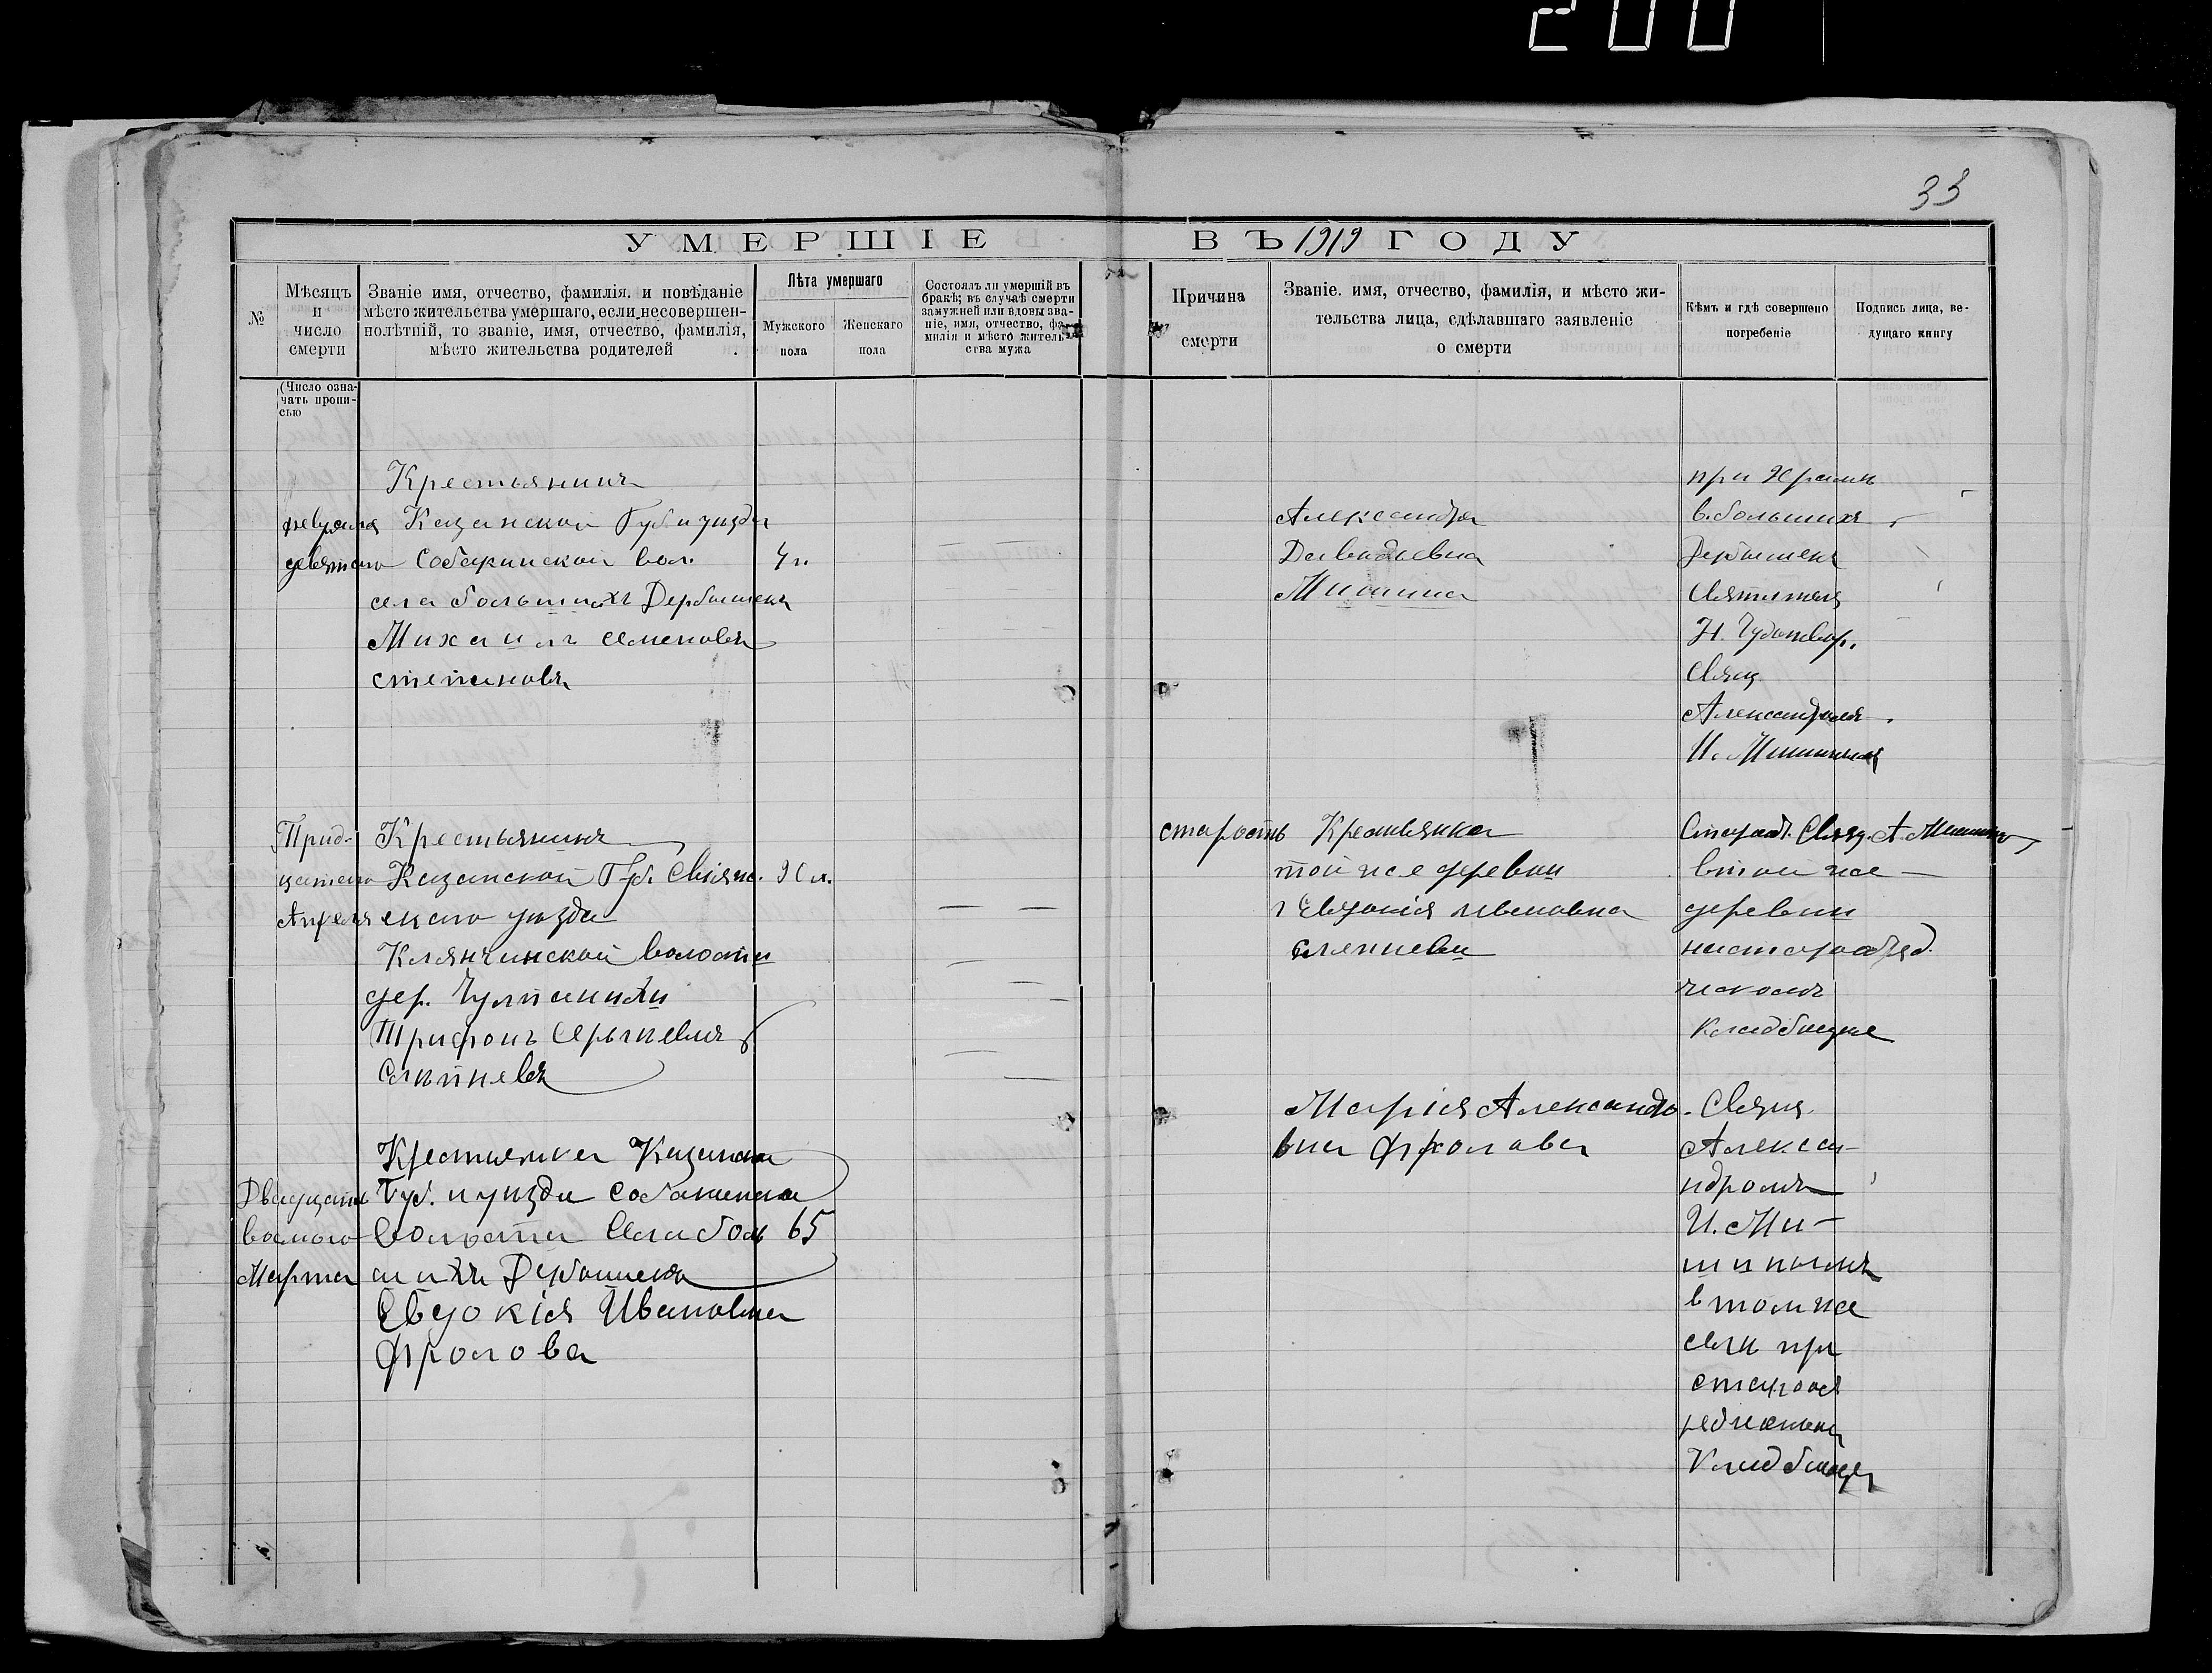 200
33
УМЕРШІЕ ВЪ 1919 ГОДУ
№
Мѣсяцъ
и
число
смерти
Званіе имя, отчество, фамилія. и повѣданіе
мѣсто жительства умершаго, если несовершен-
нолѣтній, то званіе, имя, отчество, фамилія,
мѣсто жительства родителей
Лѣта умершаго
Мужского
пола
Женскаго
пола
Состоялъ ли умершій въ
бракѣ; въ случаѣ смерти
замужней или вдовы зва-
ніе, имя, отчество, фа-
милія и мѣсто житель-
ства мужа
Причина
смерти
Званіе. имя, отчество, фамилія, и мѣсто жи-
тельства лица, сдѣлавшаго заявленіе
о смерти
Кѣмъ и гдѣ совершено
погребеніе
Подпись лица, ве-
дущаго книгу
(Число озна-
чать пропи-
сью
февраля
девятаго
Крестьянинъ
Казанской Губ и уѣзда
Собакинской вол.
села большихъ Дербышекъ
Михаилъ семеновъ
степановъ
4 г.
Александра
Давыдовна
Мишина
при Храмѣ
в. большихъ
Дербышекъ
Святителя
Н. Чудотвор.
Свящ
Александромъ
И. Мишинымъ
Трид-
цатаго
Апреля
Крестьянинъ
Казанской Губ. Свіяж.
скаго уѣзда
Клянчинской волости
дер. Чулпанихи
Трифонъ
90 л.
старость
Крестьянка
той же деревни
Евдокія Ивановна
Старооб. Свящ. А. Мишинъ
в той же
деревни
на старообряд.
ческомъ
кладбище
Двадцать
восмого
Марта
Крестьянка Казанской
Губ. и уѣзда Собакинской
волости Села боль
шихъ Дербышекъ
Евдокія Ивановна
Фролова
65
Марія Александро-
вна Фролова
Свящ.
Алекса-
ндромъ
И. Ми-
шинымъ
в томже
селѣ при
Кладбище